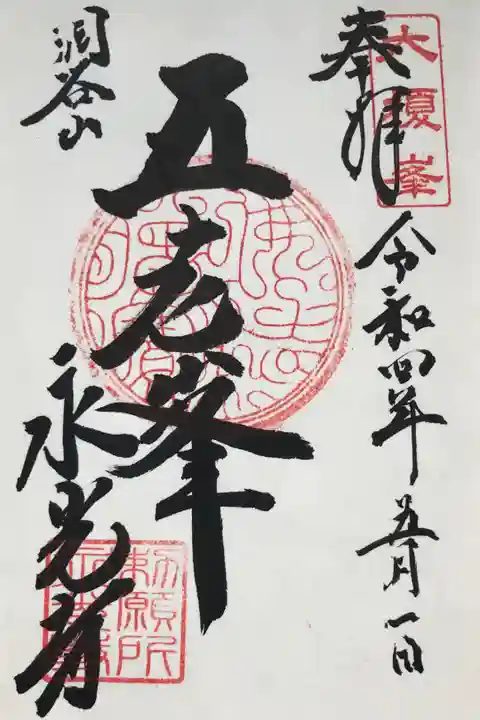 奉拝
大夏峯
令和四年 五月一日
五老峯
洞谷山
永光寺
勅願所